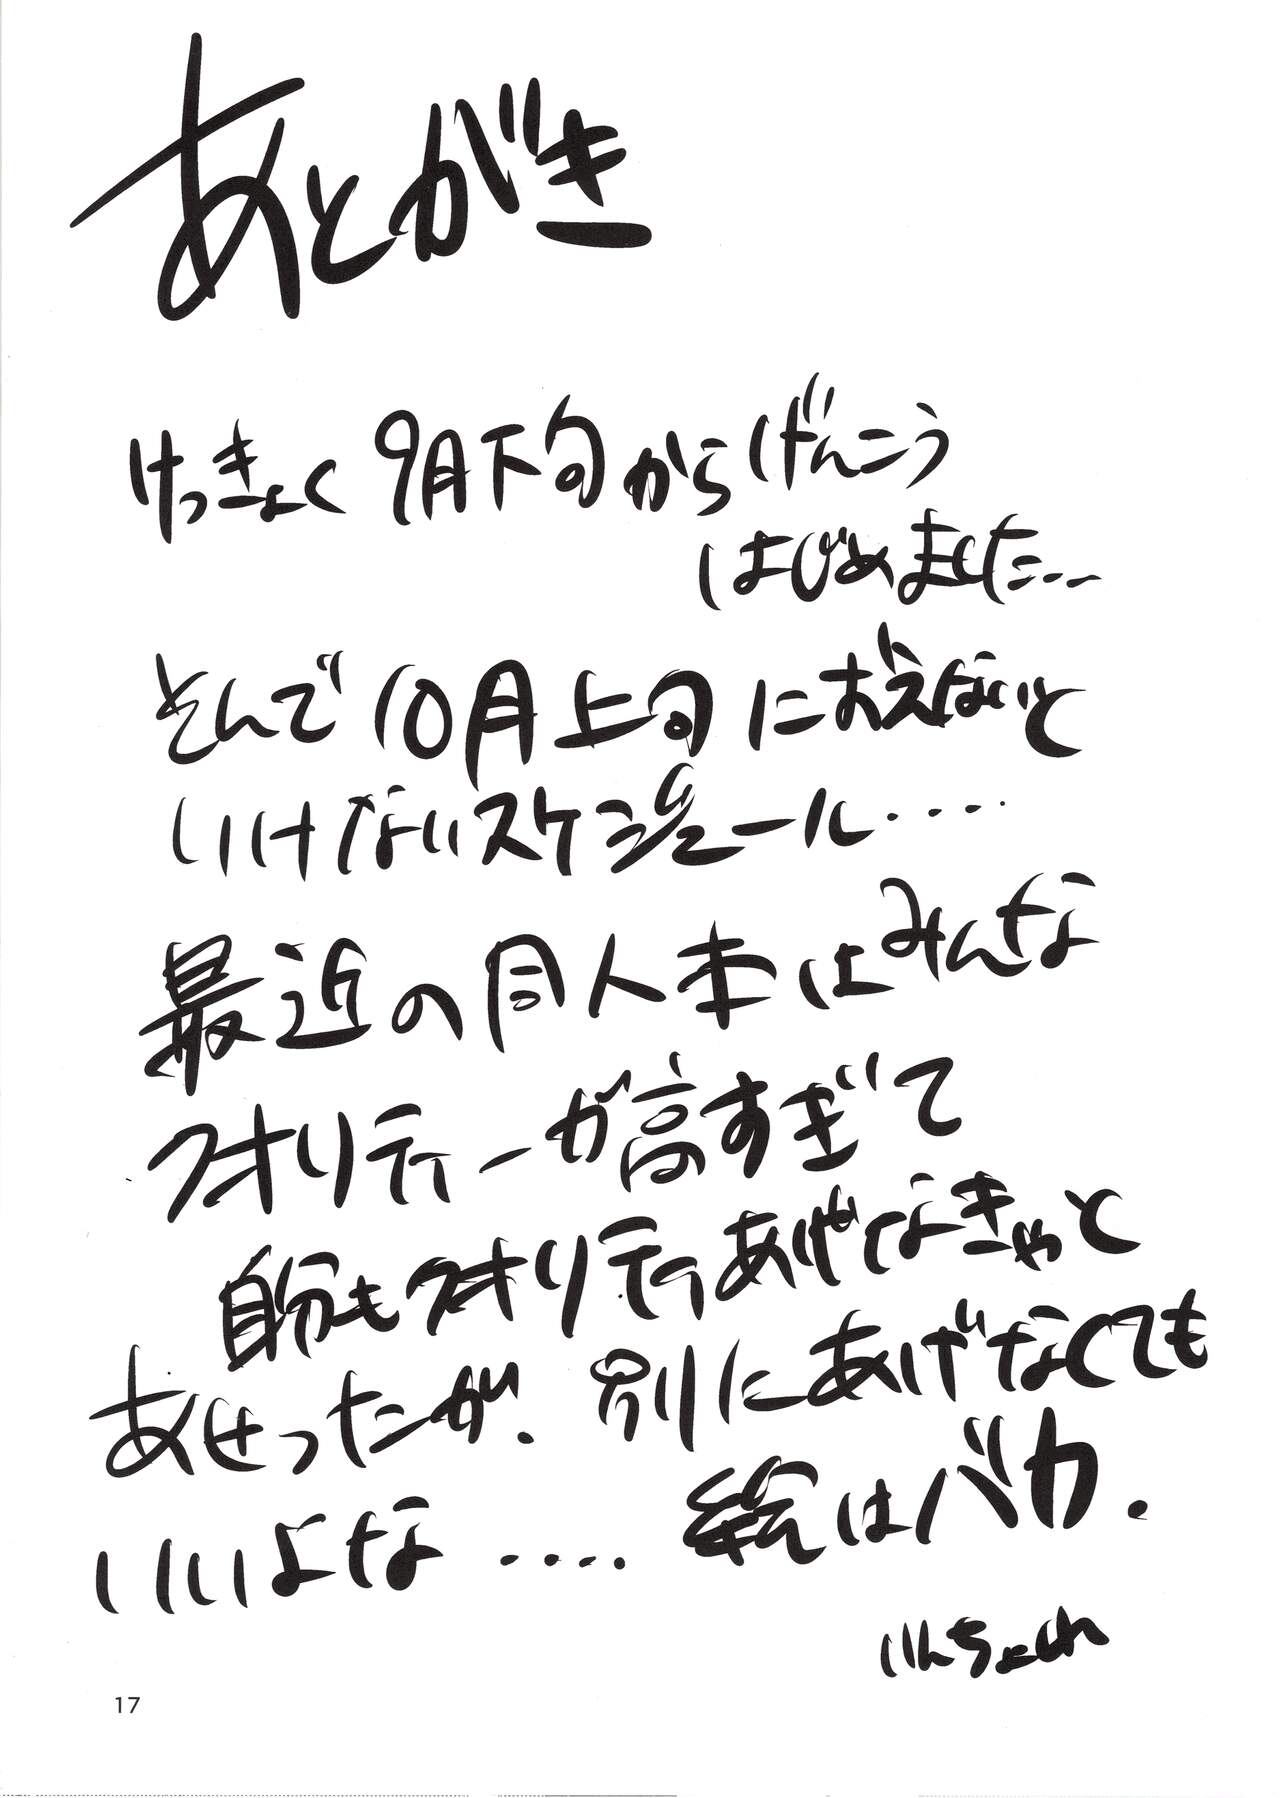 あとがき
けっきょく 9月下旬からげんこう
はじめました…
そんで10月上旬におえないと
いけないスケジュール‥‥
最近の同人本はみんな
クオリティーが高すぎて
自分もクオリティあげなきゃと
あせったが、別にあげなくても
いいよな‥‥絵はバカ.
17